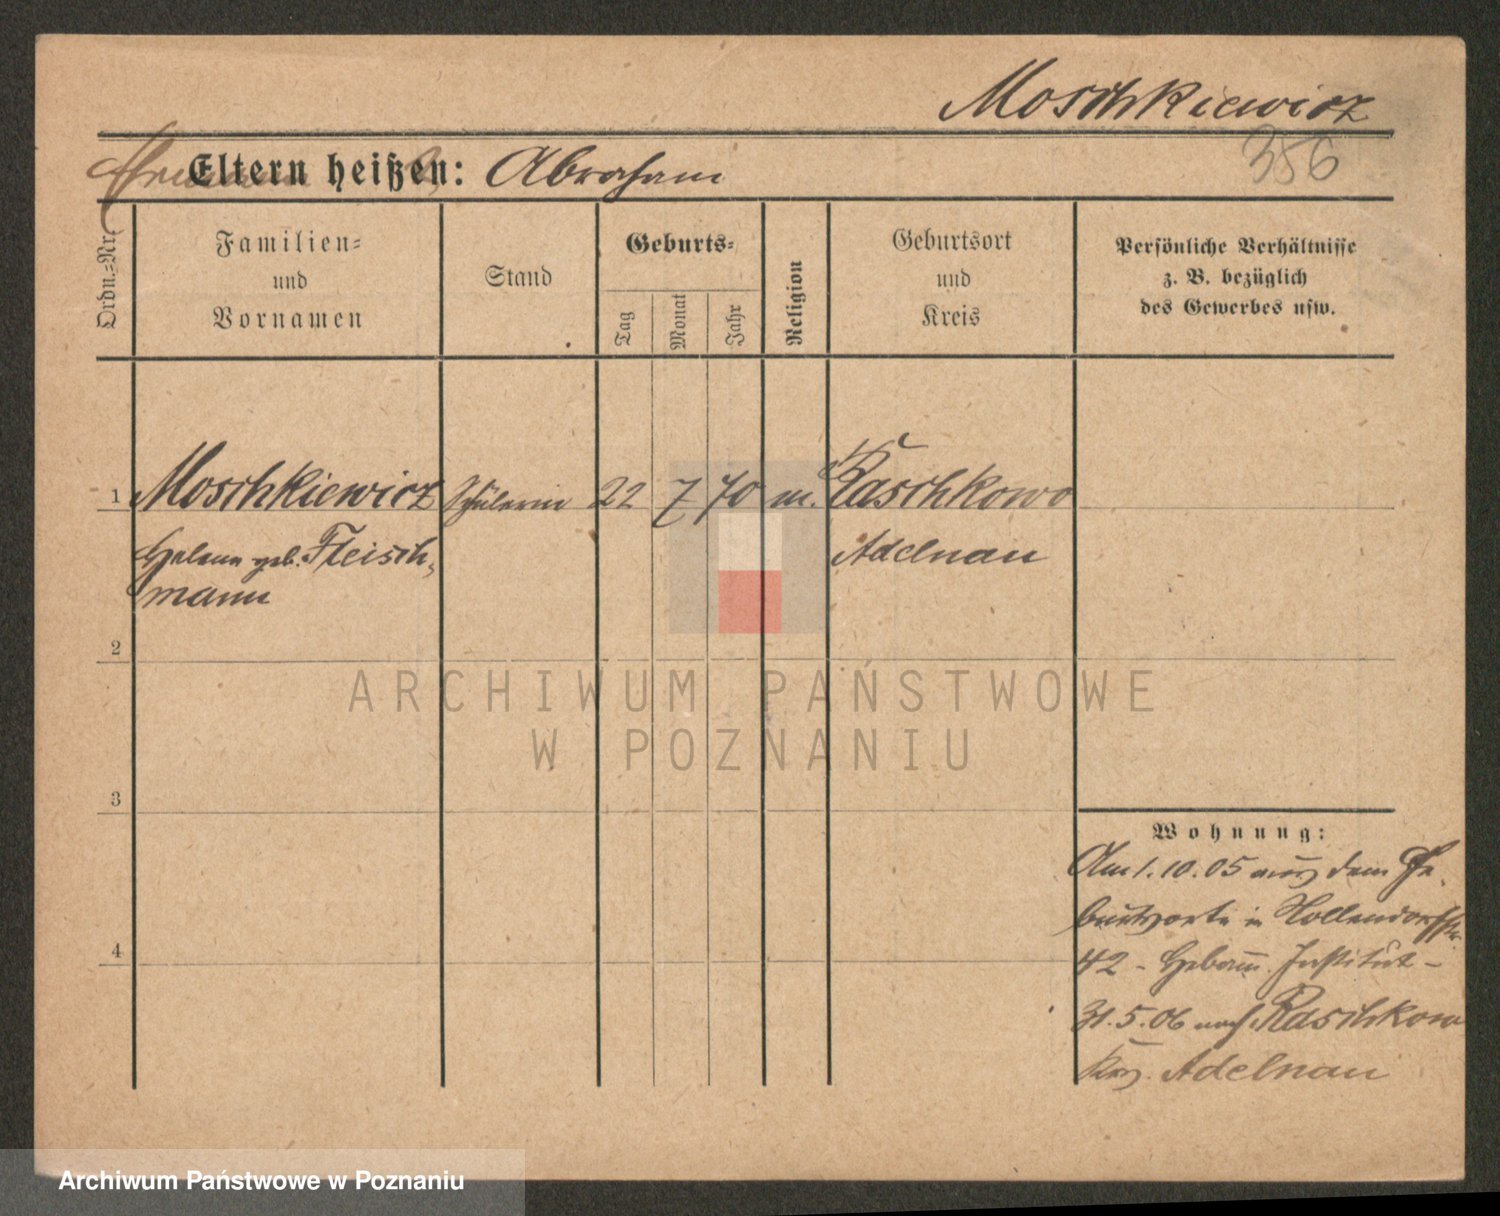 Moschkiewicz
386
Eltern heißen: Abraham
Ordn.-Nr.
Familien-
und
Vornamen
Stand
Geburts-
Tag
Monat
Jahr
Religion
Geburtsort
und
Kreis
Persönliche Verhältnisse
z. B. bezüglich
des Gewerbes usw.
1 Moschkiewicz Schülerin 22 7 70 m. Raschkowo
Helene geb. Fleisch-
mann
Adelnau
2
3
4
ARCHIWUM PAŃSTWOWE
W POZNANIU
Wohnung:
Am 1.10.05 aus dem Ge-
burtsorte in Hollendorfstr.
42 - Hebam. Institut -
31.5.06 nach Raschkow
Krs. Adelnau
Archiwum Państwowe w Poznaniu